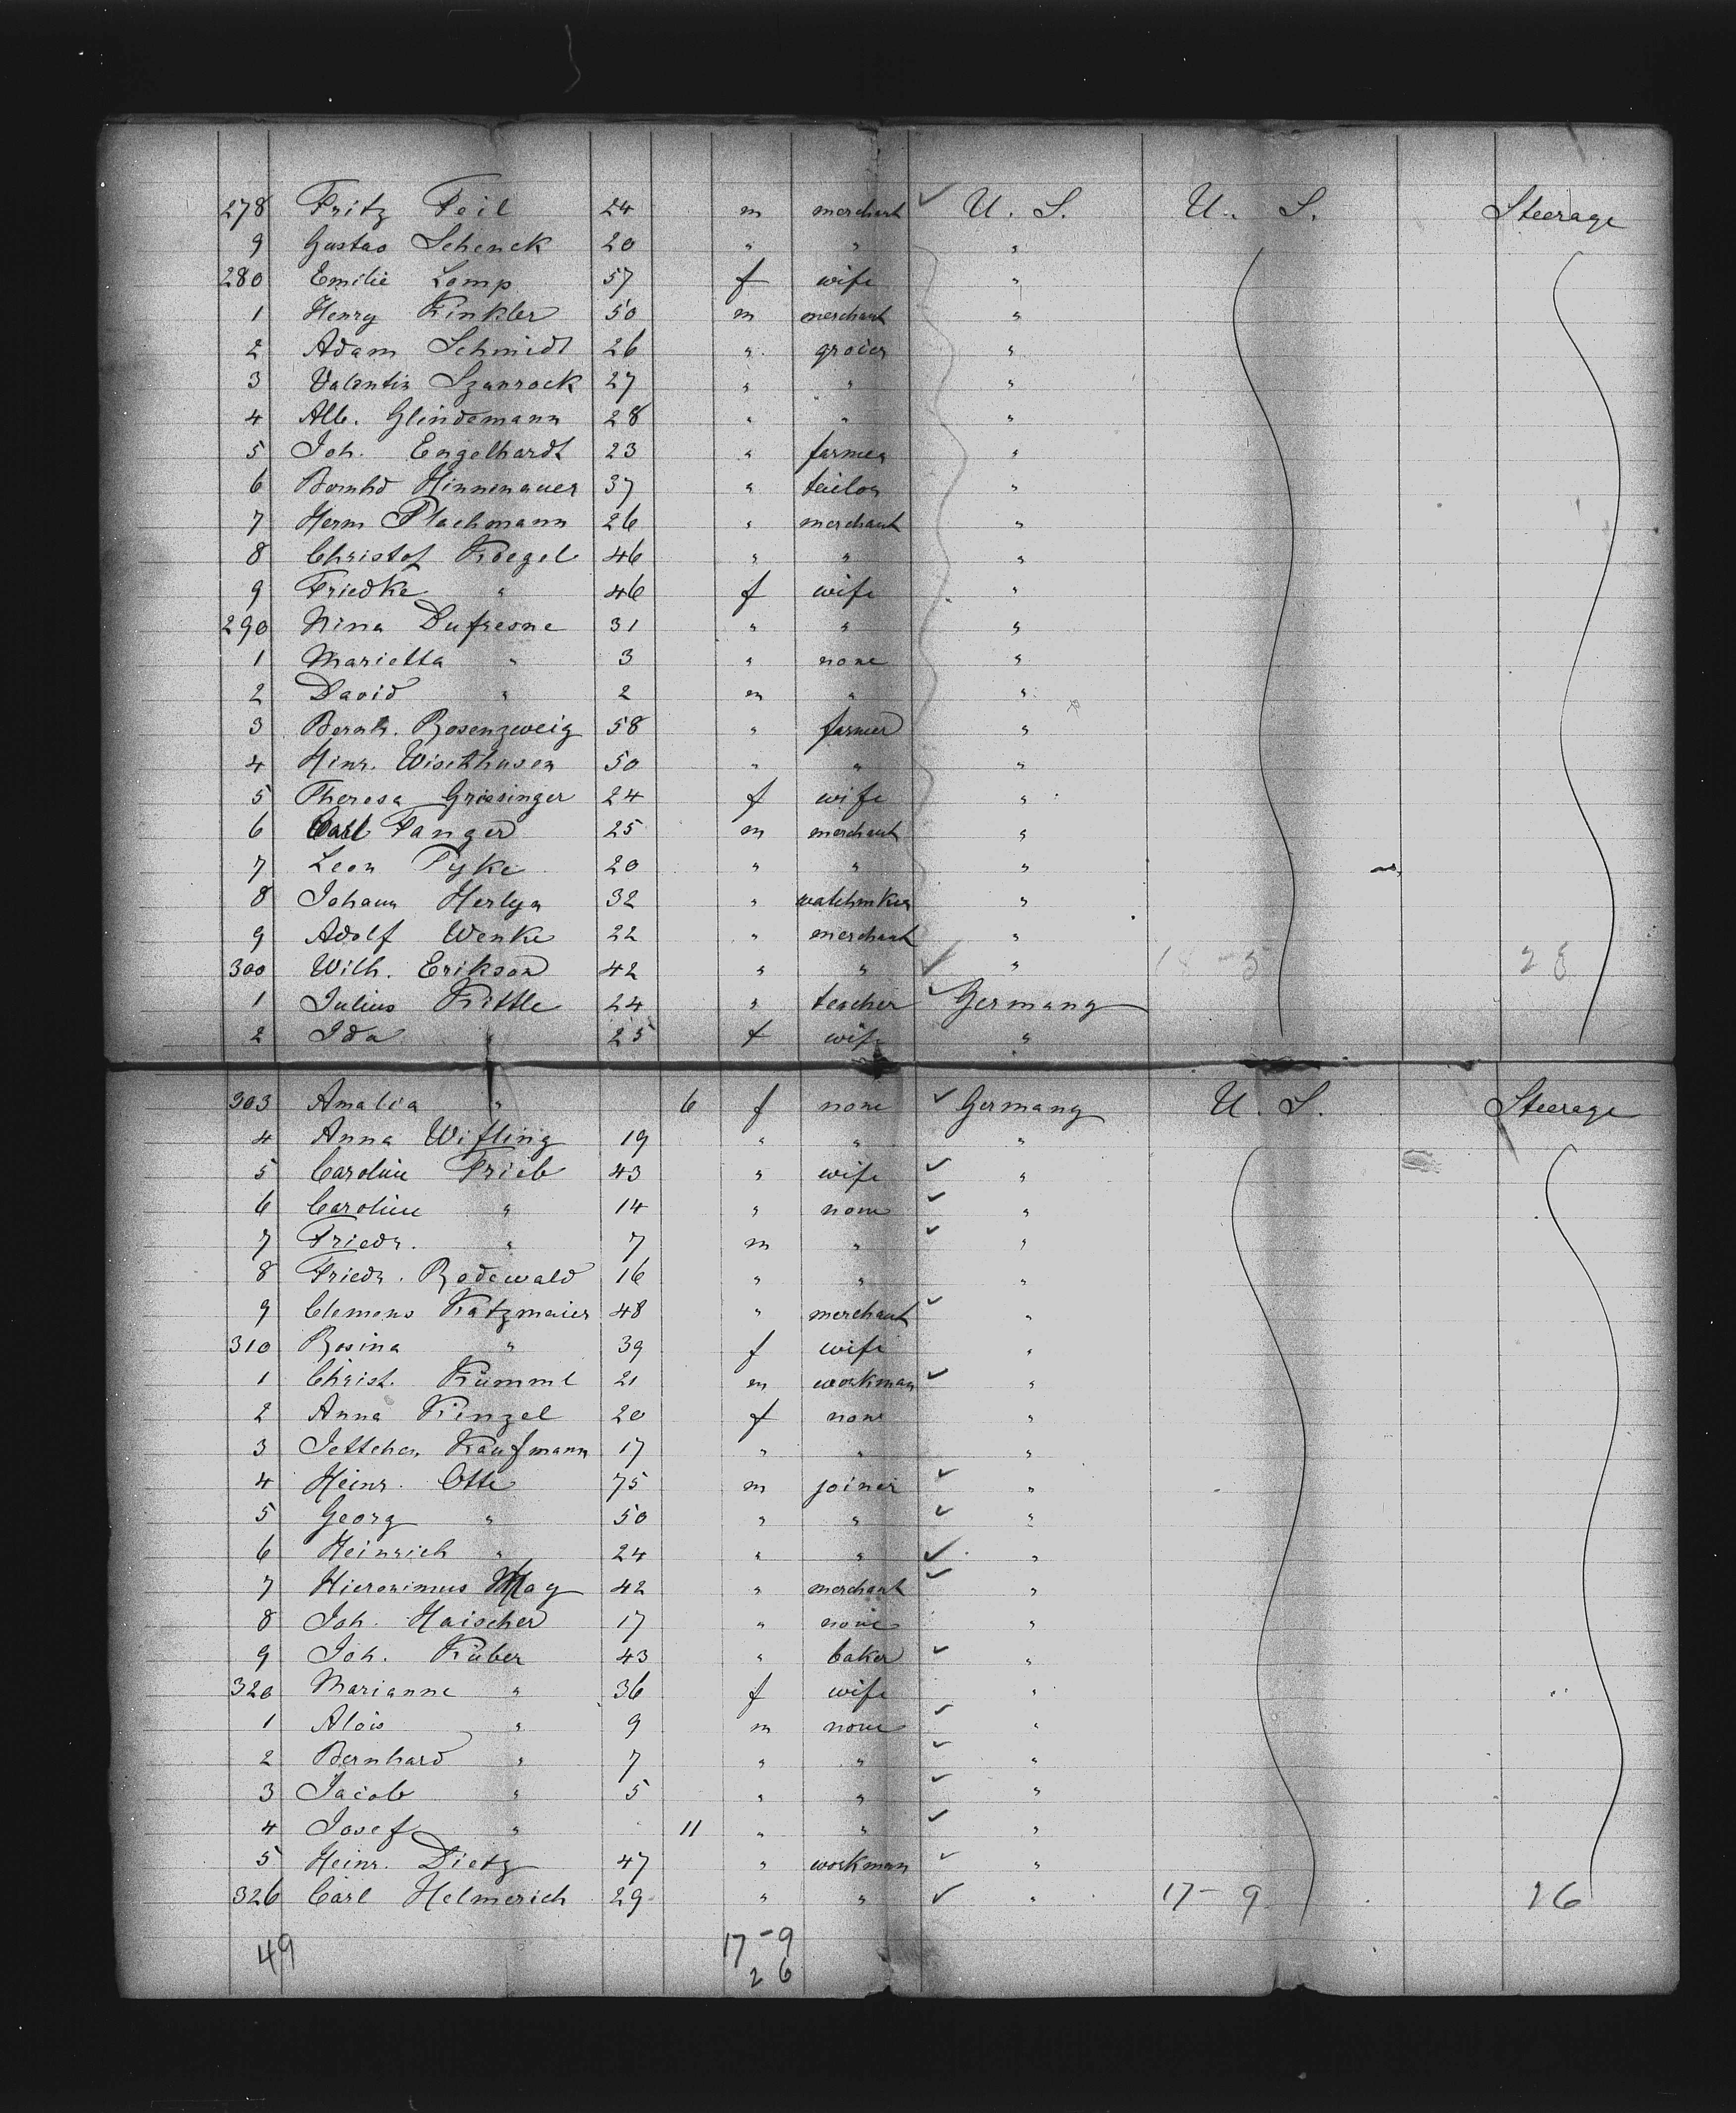 278 Fritz Feil 24 m merchant ✓ U. S. U. S. Steerage
9 Gustav Schenck 20 " " "
280 Emilie Lomp 57 f wife "
1 Henry Kinkler 50 m merchant "
2 Adam Schmidt 26 " grocer "
3 Valentin Szanrock 27 " " "
4 Alb. Glindemann 28 " " "
5 Joh. Engelhardt 23 " farmer "
6 Bernhd Hinnenauer 37 " tailor "
7 Herm Plachmann 26 " merchant "
8 Christof Kroegel 46 " " "
9 Friedke " 46 f wife "
290 Nina Dufresne 31 " " "
1 Marietta " 3 " none "
2 David " 2 m " "
3 Bernh. Rosenzweig 58 " farmer "
4 Hinr. Wischhusen 50 " " "
5 Theresa Griesinger 24 f wife "
6 Carl Fanger 25 m merchant "
7 Leon Pyke 20 " " "
8 Johann Herlyn 32 " watchmker "
9 Adolf Wenke 22 " merchant "
300 Wilh. Erikson 42 " " ✓ "
1 Julius Kittle 24 " teacher ✓ Germany
2 Ida " 25 f wife "
303 Amalia " 6 f none ✓ Germany U. S. Steerage
4 Anna Wifling 19 " " "
5 Caroline Frieb 43 " wife ✓ "
6 Caroline " 14 " none ✓ "
7 Friedr. " 7 m " ✓ "
8 Friedr. Rodewald 16 " " "
9 Clemens Katzmaier 48 " merchant ✓ "
310 Rosina " 39 f wife "
1 Christ. Kümml 21 m workman ✓ "
2 Anna Kinzel 20 f none "
3 Jettchen Kaufmann 17 " " "
4 Heinr. Otte 75 m joiner ✓ "
5 Georg " 50 " " ✓ "
6 Heinrich " 24 " " ✓ "
7 Hieronimus May 42 " merchant ✓ "
8 Joh. Haischer 17 " none "
9 Joh. Küber 43 " baker ✓ "
320 Marianne " 36 f wife "
1 Alois " 9 m none ✓ "
2 Bernhard " 7 " " ✓ "
3 Jacob " 5 " " ✓ "
4 Josef " 11 " " ✓ "
5 Heinr. Dietz 47 " workman ✓ "
326 Carl Helmerich 29 " " ✓ " 17-9 26
49 17-9
26